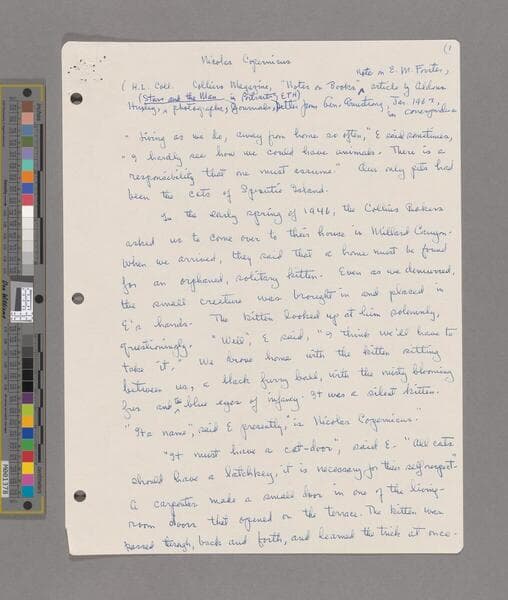 (1
Nicolas Copernicus
Note on E. M. Forster,
(H.L. Coll. Collins Magazine, "Notes on Books, article by Aldous
(Stars and the Man in Portraits, ETH)
Huxley, photographs, Journals, letter from Gen. Armstrong, Jan. 1963,
in correspondence
"Living as we do, away from home so often," E said sometimes,
"I hardly see how we could have animals. There is a
responsibility that one must assume." Our only pets had
been the cats of Island.
In the early spring of 1946, the Collins Bakers
asked us to come over to their house in Millard Canyon.
When we arrived, they said that a home must be found
for an orphaned, solitary kitten. Even as we demurred,
the small creature was brought in and placed in
E's hands. The kitten looked up at him solemnly,
questioningly. "Well", E said, "I think we'll have to
take it." We drove home with the kitten sitting
between us, a black furry ball, with the misty blooming
fur and the blue eyes of infancy. It was a silent kitten.
"Its name", said E presently, "is Nicolas Copernicus."
"It must have a cat-door", said E. "All cats
should have a latchkey, it is necessary for their self-respect"
A carpenter made a small door in one of the living-
room doors that opened on the terrace. The kitten was
passed through, back and forth, and learned the trick at once.